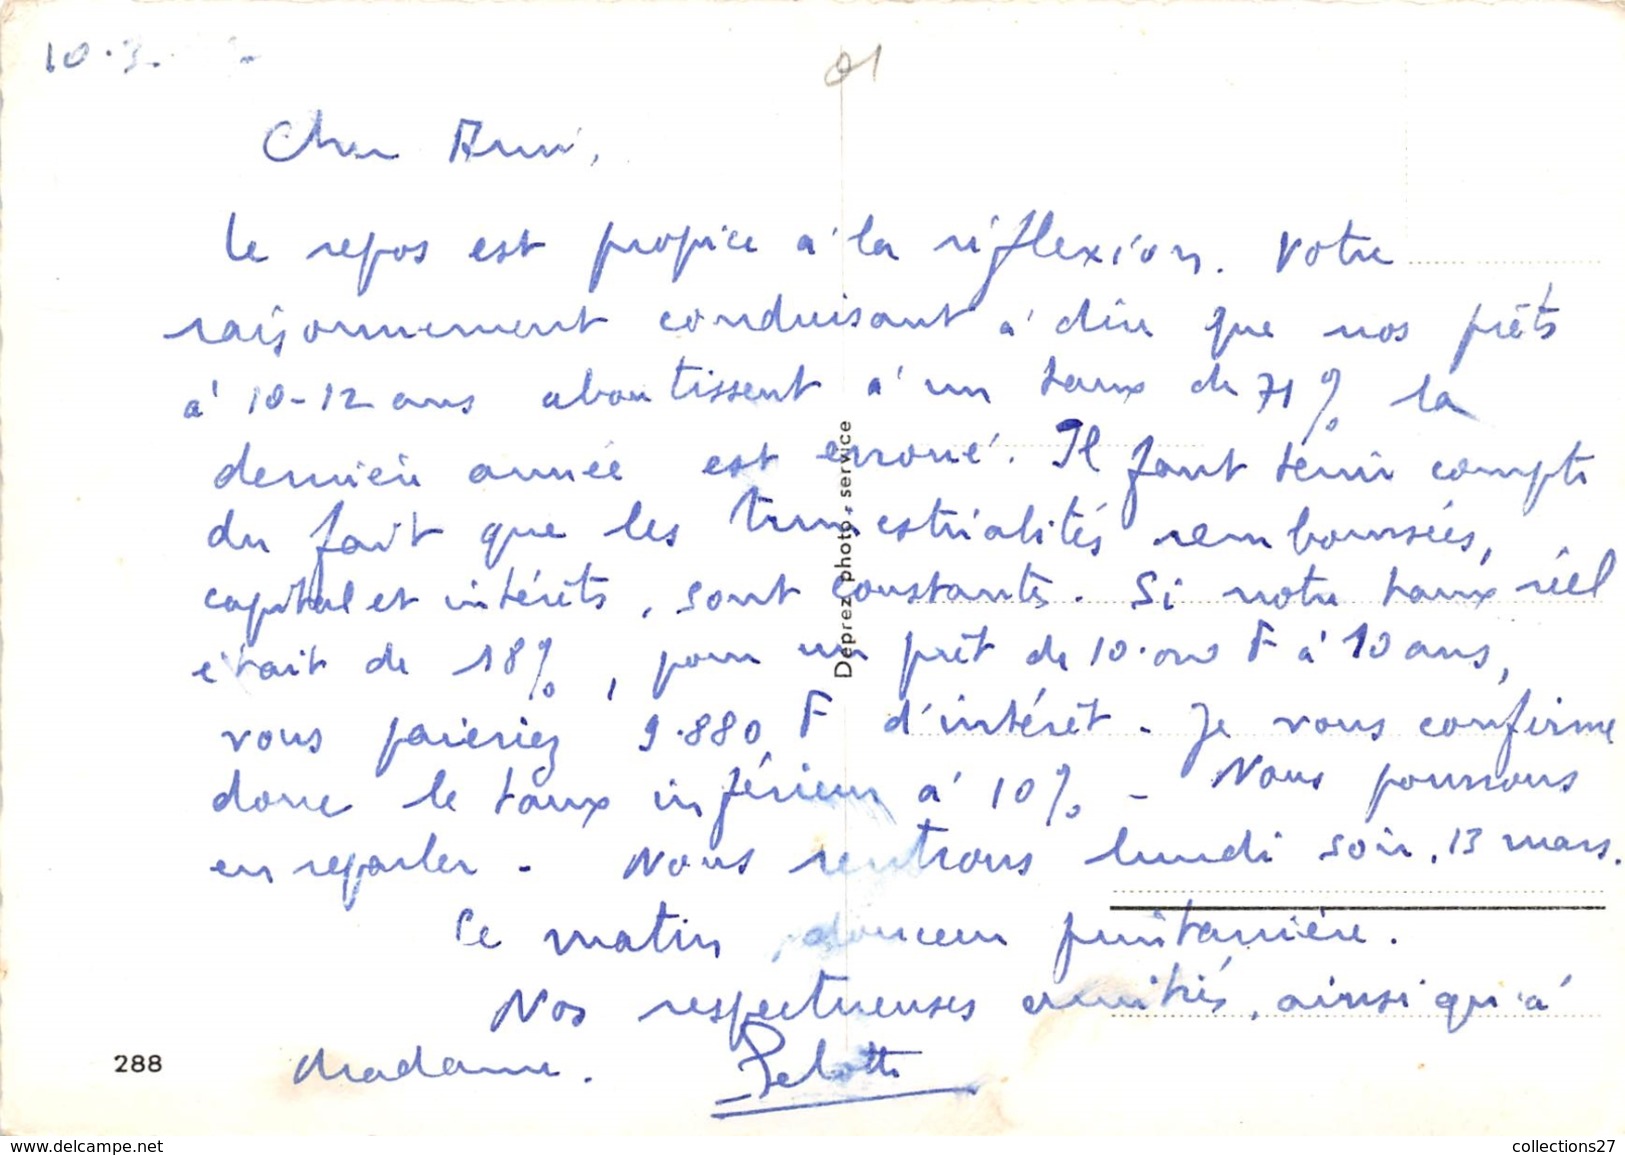 10.3.
01
Cher Ami,
Le repos est propice à la réflexion. Votre
raisonnement conduisant à dire que nos prêts
à 10-12 ans aboutissent à un taux de 71% la
dernière année est erroné. Il faut tenir compte
du fait que les trimestrialités remboursées,
capital et intérêts, sont constantes. Si notre taux réel
était de 18%, pour un prêt de 10.000 F à 10 ans,
vous paieriez 9.880 F d'intérêt - Je vous confirme
donc le taux inférieur à 10% - Nous pourrons
en reparler - Nous rentrons lundi soir, 13 mars.
Ce matin, douceur printanière.
Nos respectueuses amitiés, ainsi qu'à
Madame.
Deprez photo-service
288
www.delcampe.net
collections27